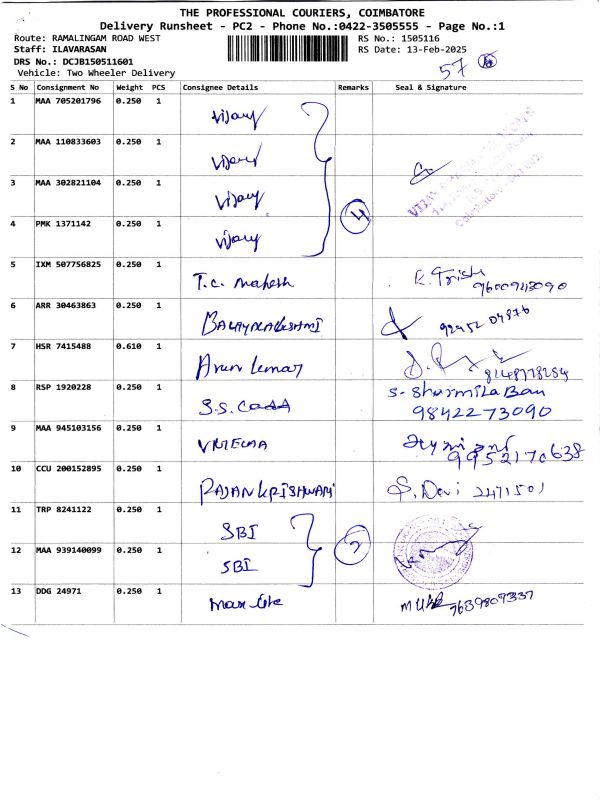 THE PROFESSIONAL COURIERS, COIMBATORE
Delivery Runsheet - PC2 - Phone No.:0422-3505555 - Page No.:1
Route: RAMALINGAM ROAD WEST RS No.: 1505116
Staff: ILAVARASAN RS Date: 13-Feb-2025
DRS No.: DCJB150511601
Vehicle: Two Wheeler Delivery 57
S No Consignment No Weight PCS Consignee Details Remarks Seal & Signature
1 MAA 705201796 0.250 1 Vijay
2 MAA 110833603 0.250 1 Vijay
3 MAA 302821104 0.250 1 Vijay
4 PMK 1371142 0.250 1 Vijay 4
5 IXM 507756825 0.250 1 T.C. Mahesh 9600943090
6 ARR 30463863 0.250 1
7 HSR 7415488 0.610 1 Arun Kumar
8 RSP 1920228 0.250 1 S.S. S. Sharmila Banu
9842273090
9 MAA 945103156 0.250 1 9952170638
10 CCU 200152895 0.250 1 S. Devi 2471501
11 TRP 8241122 0.250 1 SBI
12 MAA 939140099 0.250 1 SBI 2
13 DDG 24971 0.250 1 9639809337